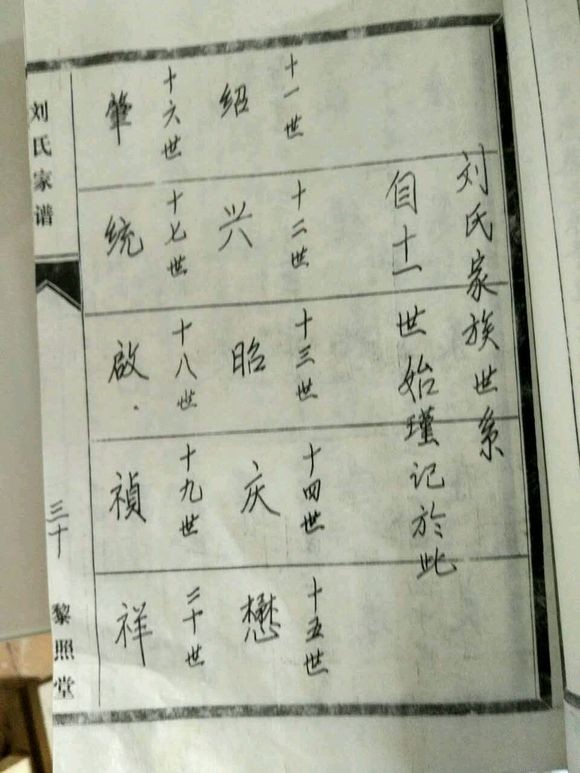 刘氏家族世系
自十一世始瑾记於此
十一世
绍
十二世
兴
十三世
昭
十四世
庆
十五世
懋
十六世
肇
十七世
统
十八世
啟
十九世
禎
二十世
祥
刘氏家谱
三十
黎照堂